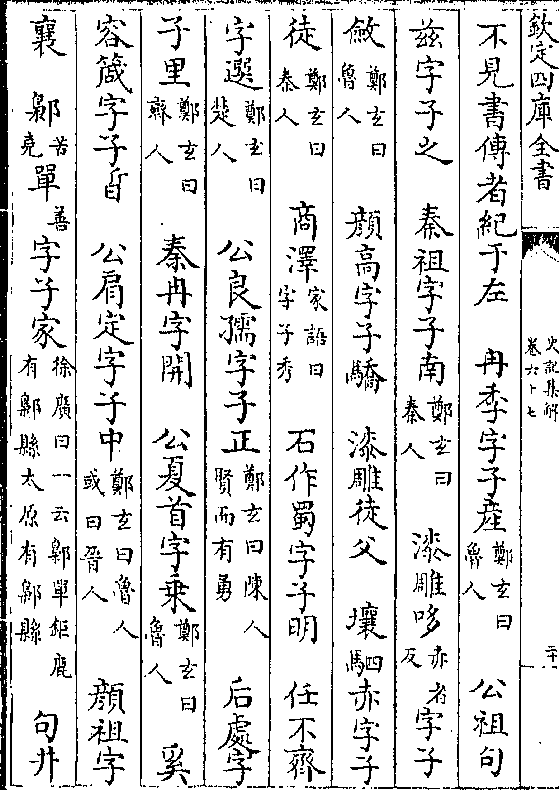 欽定四庫全書
史記集解
卷六十七
二十
不見書傳者紀于左 冉季字子産鄭玄曰魯人 公祖句
兹字子之 秦祖字子南鄭玄曰秦人 漆雕哆赤者反字子
斂鄭玄曰魯人 顔高字子驕 漆雕徒父 壤駟赤字子
徒鄭玄曰秦人 商澤家語曰字子秀 石作蜀字子明 任不齊
字選鄭玄曰楚人 公良孺字子正鄭玄曰陳人賢而有勇 后處字
子里鄭玄曰齊人 秦冉字開 公夏首字乘鄭玄曰魯人 奚
容箴字子晳 公肩定字子中鄭玄曰魯人或曰晉人 顔祖字
襄 鄡苦堯單善字子家徐廣曰一云鄡單鉅鹿有鄡縣太原有鄔縣 句井